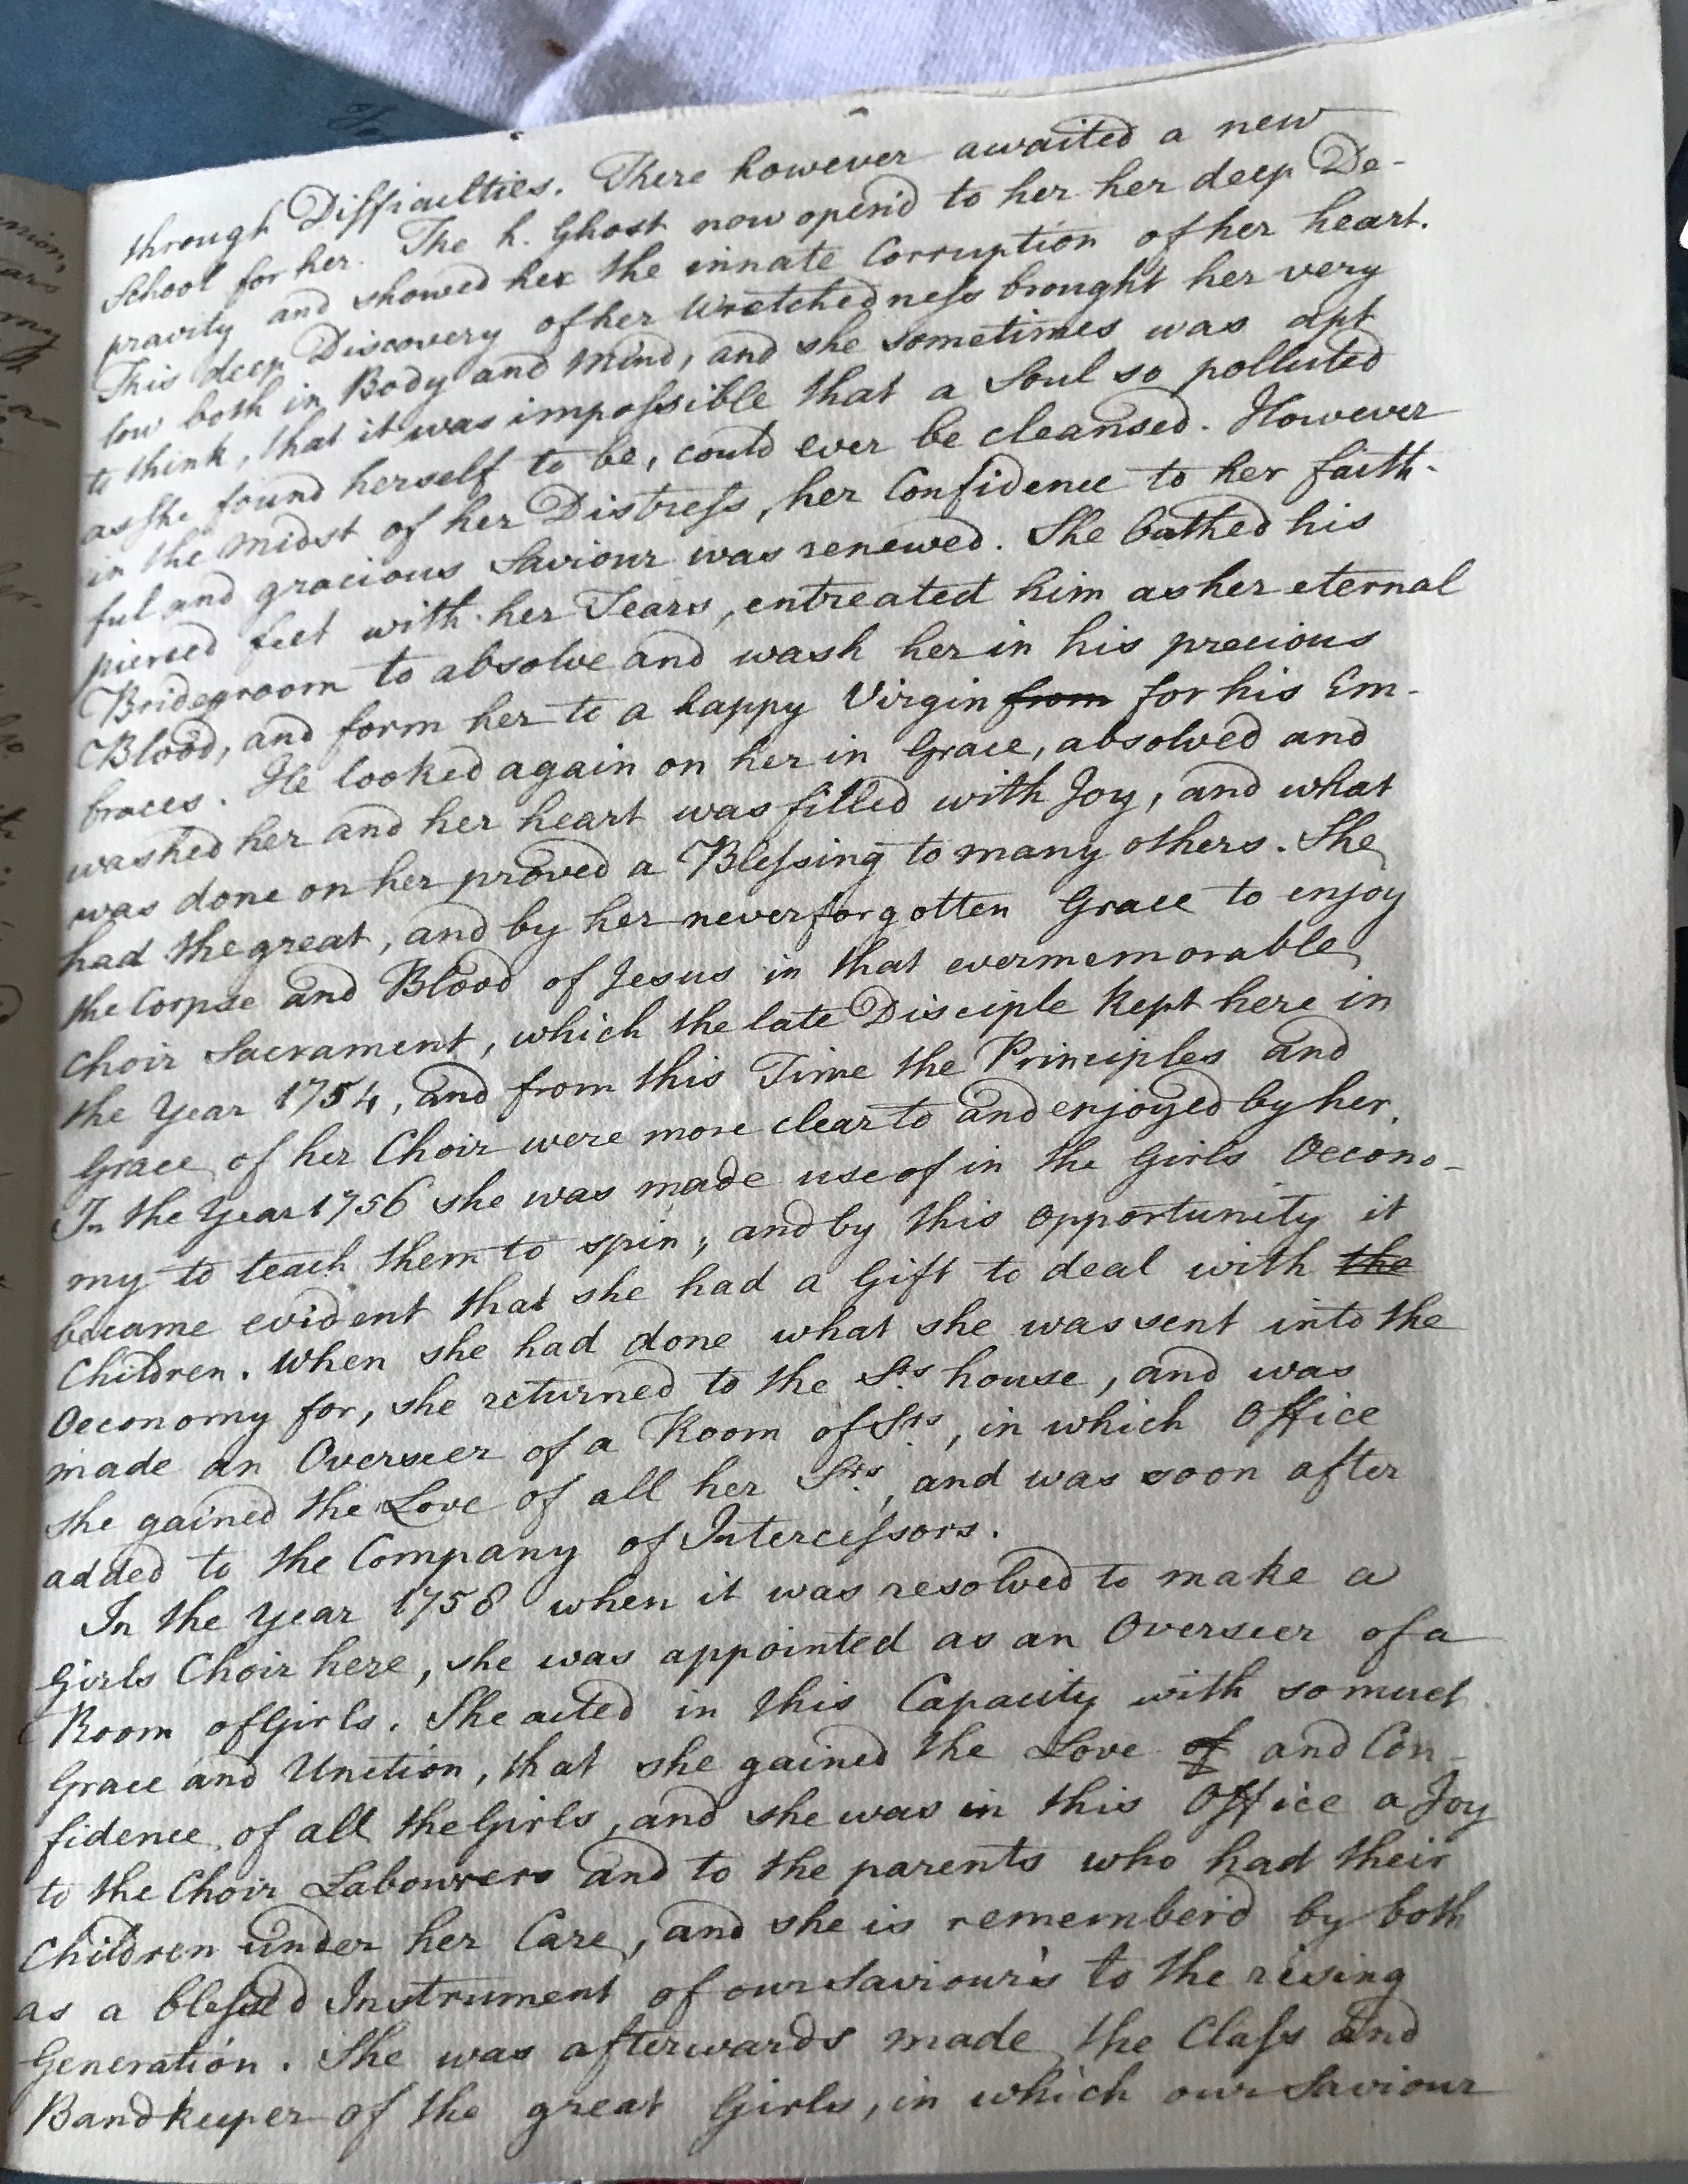 through Difficulties. There however awaited a new
School for her. The h. Ghost now open'd to her her deep De-
pravity and showed her the innate Corruption of her heart.
This deep Discovery of her Wretchedness brought her very
low both in Body and Mind, and she sometimes was apt
to think, that it was impossible that a Soul so polluted
as she found herself to be, could ever be cleansed. However
in the Midst of her Distress, her Confidence to her faith-
ful and gracious Saviour was renewed. She bathed his
pierced feet with her Tears, entreated him as her eternal
Bridegroom to absolve and wash her in his precious
Blood, and form her to a happy Virgin from for his Em-
braces. He looked again on her in Grace, absolved and
washed her and her heart was filled with Joy, and what
was done on her proved a Blessing to many others. She
had the great, and by her neverforgotten Grace to enjoy
the Corpse and Blood of Jesus in that evermemorable
Choir Sacrament, which the late Disciple kept here in
the Year 1754, and from this Time the Principles and
Grace of her Choir were more clear to and enjoyed by her.
In the Year 1756 she was made use of in the Girls Oecono-
my to teach them to spin, and by this opportunity it
became evident that she had a Gift to deal with the
Children. When she had done what she was sent into the
Oeconomy for, she returned to the Srs house, and was
made an Overseer of a Room of Srs, in which Office
she gained the Love of all her Srs, and was soon after
added to the Company of Intercessors.
In the Year 1758 when it was resolved to make a
Girls Choir here, she was appointed as an Overseer of a
Room of Girls. She acted in this Capacity with so much
Grace and Unction, that she gained the Love of and Con-
fidence of all the Girls, and she was in this Office a Joy
to the Choir Labourers and to the parents who had their
Children under her Care, and she is remember'd by both
as a blessed Instrument of our Saviour's to the rising
Generation. She was afterwards made the Class and
Bandkeeper of the great Girls, in which our Saviour